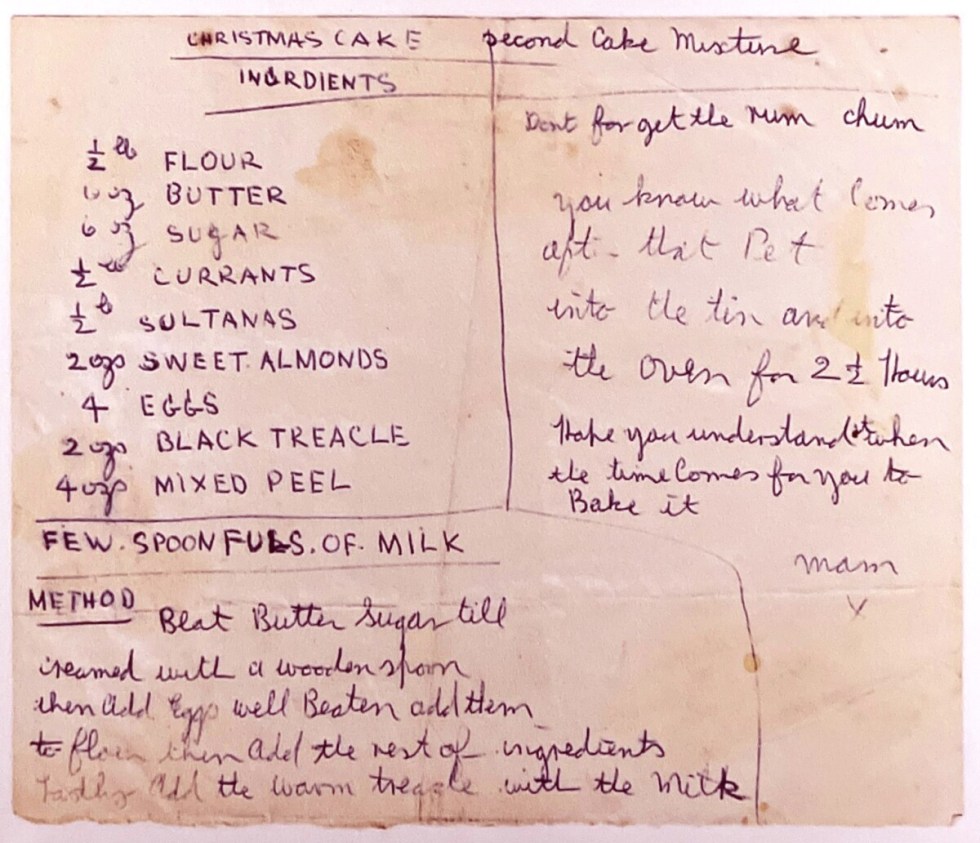 CHRISTMAS CAKE
INGRDIENTS
½ lb FLOUR
6 oz BUTTER
6 oz SUGAR
½ lb CURRANTS
½ lb SULTANAS
2 ozs SWEET ALMONDS
4 EGGS
2 ozs BLACK TREACLE
4 ozs MIXED PEEL
FEW. SPOONFULS. OF. MILK
METHOD Beat Butter Sugar till
creamed with a wooden spoon
then add Eggs well Beaten add them
to flour then add the rest of ingredients
Lastly add the warm treacle with the Milk
second Cake Mixture
Dont forget the rum chum
you know what Comes
aft. that Pet
into the tin and into
the oven for 2½ Hours
Hope you understand when
the time Comes for you to
Bake it
mam
X